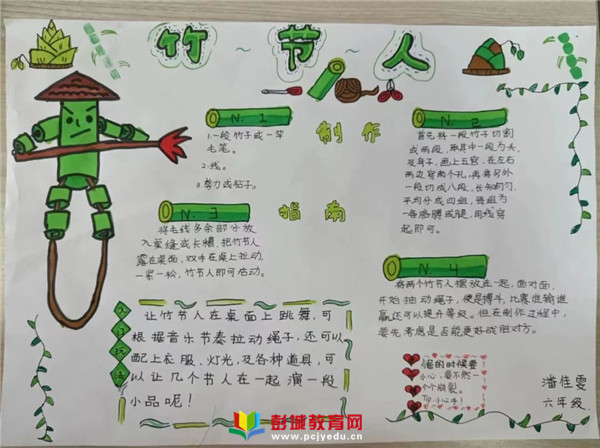 竹~节~人
制作
指南
N.1
1.一段竹子或一竿
毛笔。
2.线。
3.剪刀或钻子。
N.2
首先将一段竹子切割
成两段，取其中一段为头
及身子，画上五官，在左右
两边穿两个孔，再将另外
一段切成八段，长短均匀，
平均分成四组，每组为
一条胳膊或腿，用线穿
起即可。
N.3
将毛线多余部分放
入桌缝或长槽，把竹节人
露在桌面，双手在桌上拉动，
一紧一松，竹节人即可活动。
N.4
将两个竹节人摆放在一起，面对面，
开始抽动绳子，便是搏斗，比赛谁输谁
赢还可以提升等级。但在制作过程中，
要先考虑是否能更好战胜对方。
让竹节人在桌面上跳舞，可
根据音乐节奏拉动绳子，还可以
配上衣服、灯光，及各种道具，可
以让几个节人在一起演一段
小品呢！
的时候要
小心，要不然一
个个崩裂。
Tip:小心手！
潘佳雯
六年级
彭城教育网
www.pcjyedu.cn